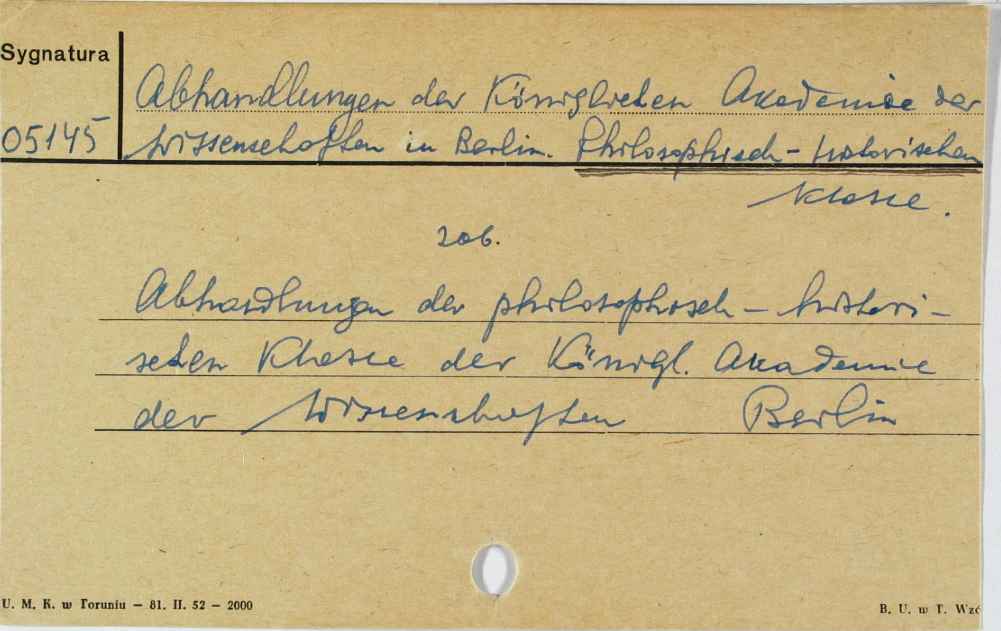 Sygnatura
Abhandlungen der Königlichen Akademie der
05145
Wissenschaften in Berlin. Philosophisch - historischen
Klasse.
zob.
Abhandlungen der philosophisch - histori-
schen Klasse der Königl. Akademie
der Wissenschaften Berlin
U. M. K. w Toruniu — 81. II. 52 — 2000
B. U. w T. Wzó